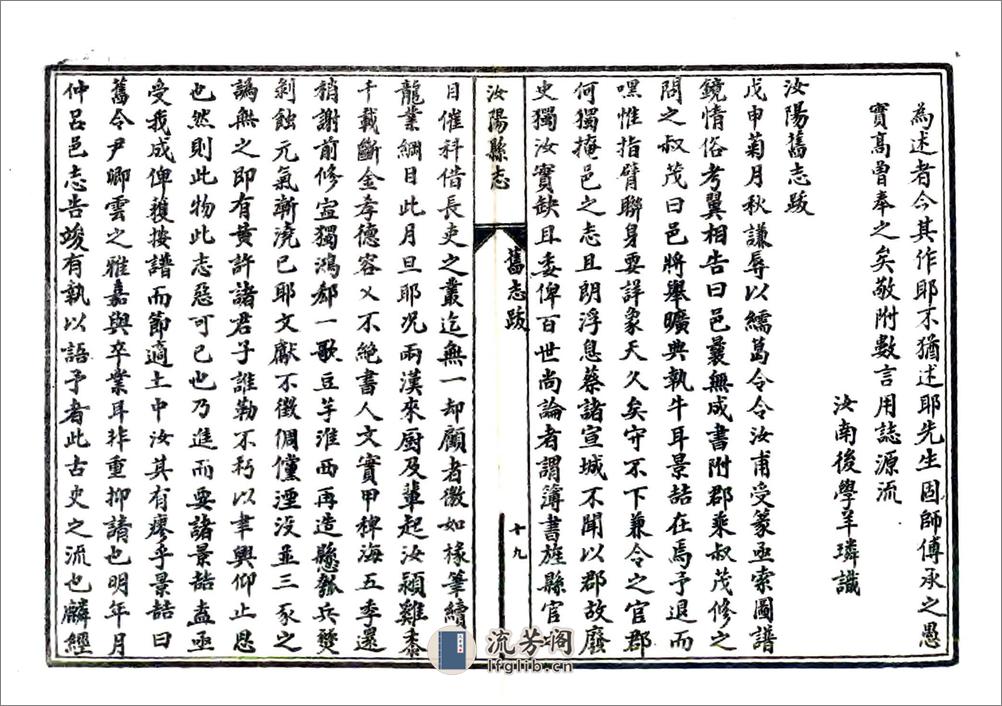 為述者今其作耶不猶述耶先生固師傅承之愚
實高曾奉之矣敬附數言用誌源流
汝南後學羊璘識
汝陽舊志跋
戊申菊月秋謙辱以繻葛令令汝甫受篆亟索圖譜
鏡情俗考翼相告曰邑曩無成書附郡乘叔茂修之
問之叔茂曰邑將舉曠典執牛耳景喆在焉予退而
嘿惟指臂聯身要詳象天久矣守不下兼令之官郡
何獨掩邑之志且朗浮息蔡諸宣城不聞以郡故廢
史獨汝實缺且委俾百世尚論者謂簿書旌縣官
汝陽縣志
舊志跋
十九
日催科借長吏之叢迄無一却顧者徼如椽筆續
龍業綱目此月旦耶况兩漢來厨及輩起汝潁雞黍
千載斷金孝德容乂不絕書人文實甲稗海五季還
稍謝前修寍獨鴻郄一歌豆芋淮西再造懸瓠兵燹
剝蝕元氣漸澆已耶文獻不徵倜儻湮没並三豕之
譌無之即有黄許諸君子誰勒不朽以聿興仰止思
也然則此物此志惡可已也乃進而要諸景喆盍亟
受我成俾穫按譜而節適土中汝其有瘳乎景喆曰
舊令尹卿雲之雅嘉與卒業耳非重抑請也明年月
仲呂邑志告竣有執以語予者此古史之流也麟經
流芳閣
lfglib.cn